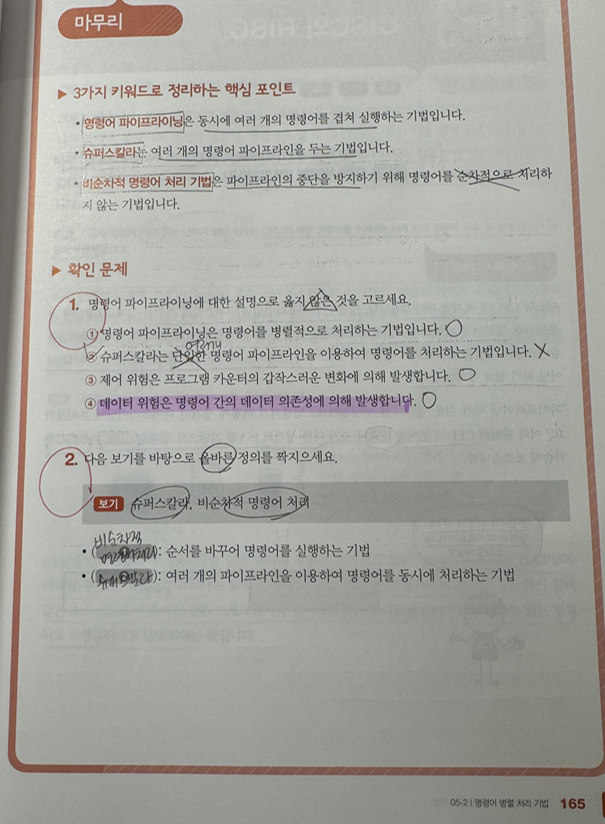 마무리
▶ 3가지 키워드로 정리하는 핵심 포인트
• 명령어 파이프라이닝은 동시에 여러 개의 명령어를 겹쳐 실행하는 기법입니다.
• 슈퍼스칼라는 여러 개의 명령어 파이프라인을 두는 기법입니다.
• 비순차적 명령어 처리 기법은 파이프라인의 중단을 방지하기 위해 명령어를 순차적으로 처리하
지 않는 기법입니다.
▶ 확인 문제
1. 명령어 파이프라이닝에 대한 설명으로 옳지 않은 것을 고르세요.
① 명령어 파이프라이닝은 명령어를 병렬적으로 처리하는 기법입니다. ○
여러개
② 슈퍼스칼라는 단일한 명령어 파이프라인을 이용하여 명령어를 처리하는 기법입니다. X
③ 제어 위험은 프로그램 카운터의 갑작스러운 변화에 의해 발생합니다. ○
④ 데이터 위험은 명령어 간의 데이터 의존성에 의해 발생합니다. ○
2. 다음 보기를 바탕으로 올바른 정의를 짝지으세요.
보기 슈퍼스칼라, 비순차적 명령어 처리
비순차적
• (명령어처리): 순서를 바꾸어 명령어를 실행하는 기법
• (슈퍼스칼라): 여러 개의 파이프라인을 이용하여 명령어를 동시에 처리하는 기법
05-2 | 명령어 병렬 처리 기법 165